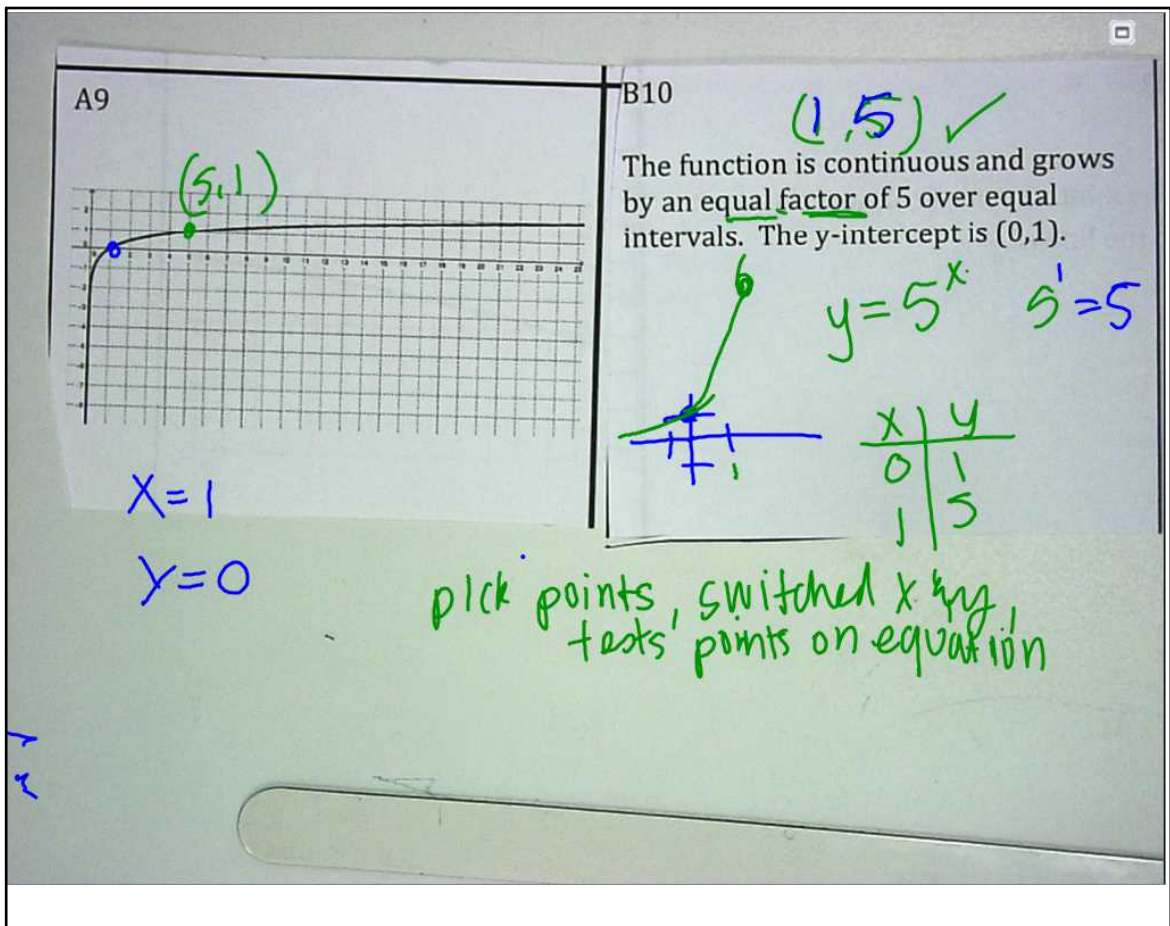 A9
(5,1)
X=1
Y=0
B10
(1,5) ✓
The function is continuous and grows
by an equal factor of 5 over equal
intervals. The y-intercept is (0,1).
y=5^x
5^1=5
1
X | y
0 | 1
1 | 5
pick points, switched x & y,
tests points on equation